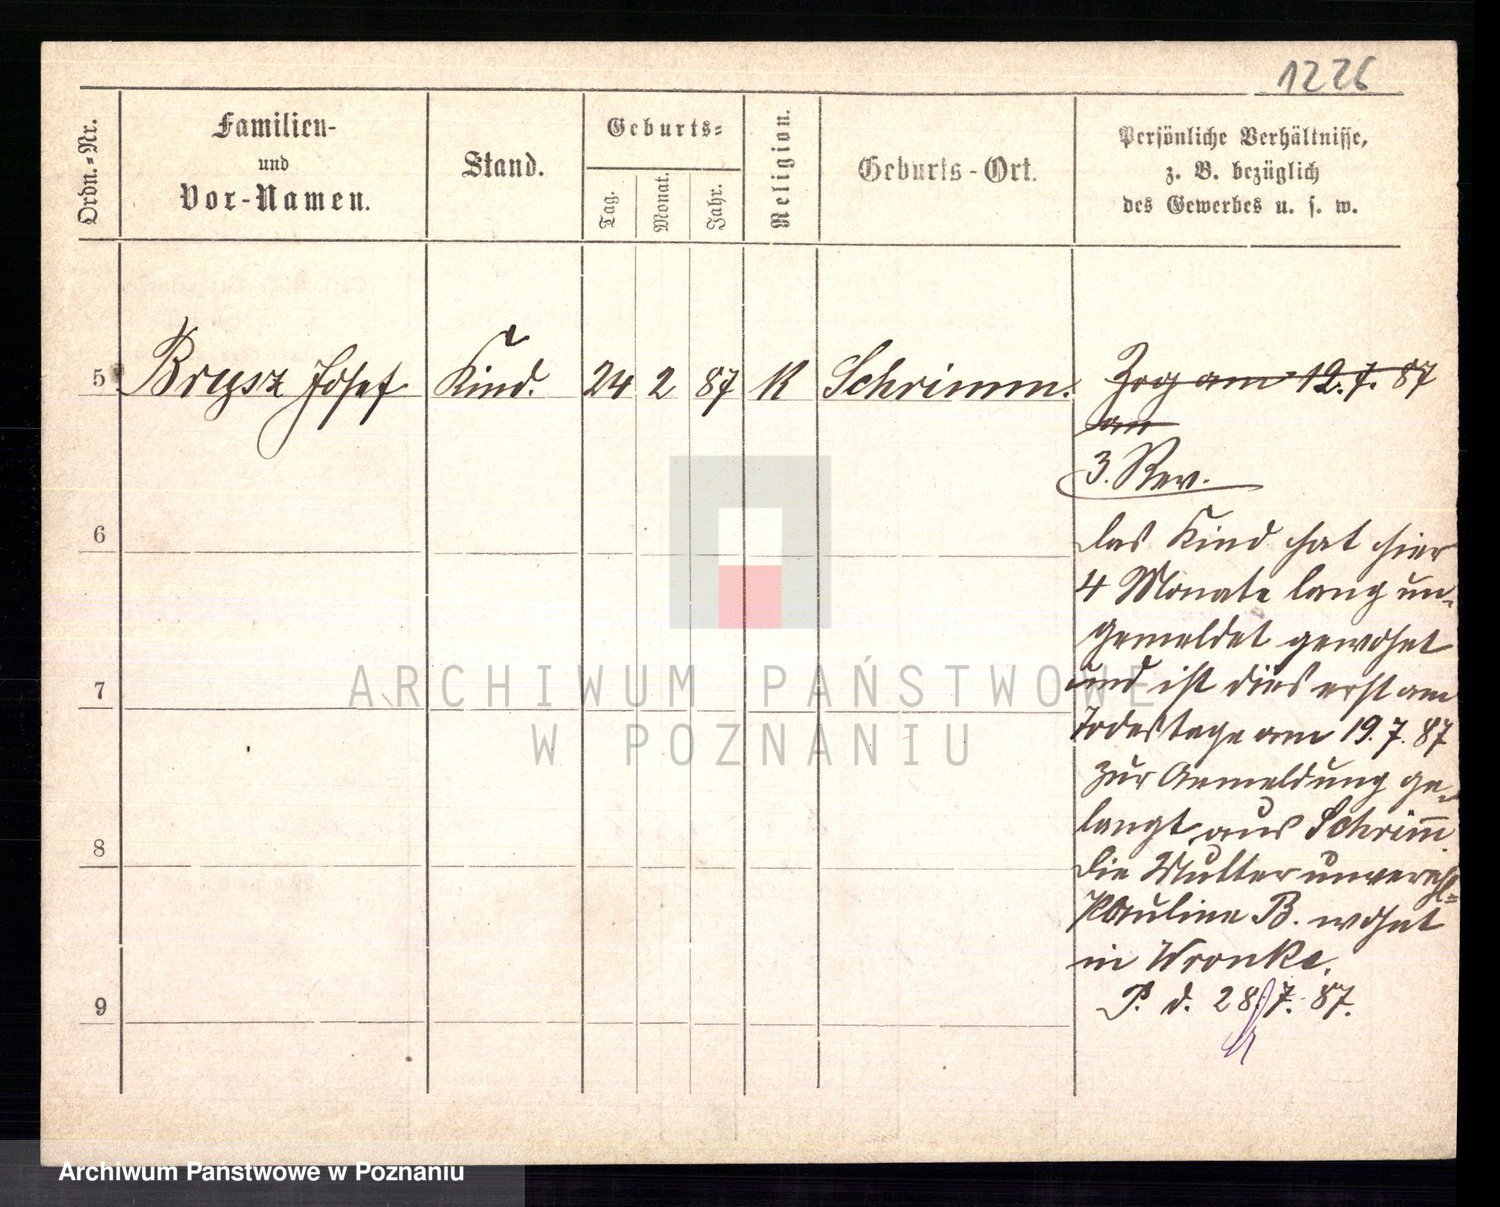 1226
Ordn.-Nr.
Familien-
und
Vor-Namen.
Stand.
Geburts-
Tag.
Monat.
Jahr.
Religion.
Geburts-Ort.
Persönliche Verhältnisse,
z. B. bezüglich
des Gewerbes u. s. w.
5 Josef Kind. 24 2 87 K Schrimm. Zog am 12.7.87
an
3. Rev.
Das Kind hat hier
4 Monate lang un-
gemeldet gewohnt
und ist dies erst am
Todestage am 19.7.87
zur Anmeldung ge-
langt, aus Schrimm.
Die Mutter unverehl-
Pauline B. wohnt
in Wronke.
P. d. 28.7.87.
6
7
8
9
ARCHIWUM PAŃSTWOWE
W POZNANIU
Archiwum Państwowe w Poznaniu